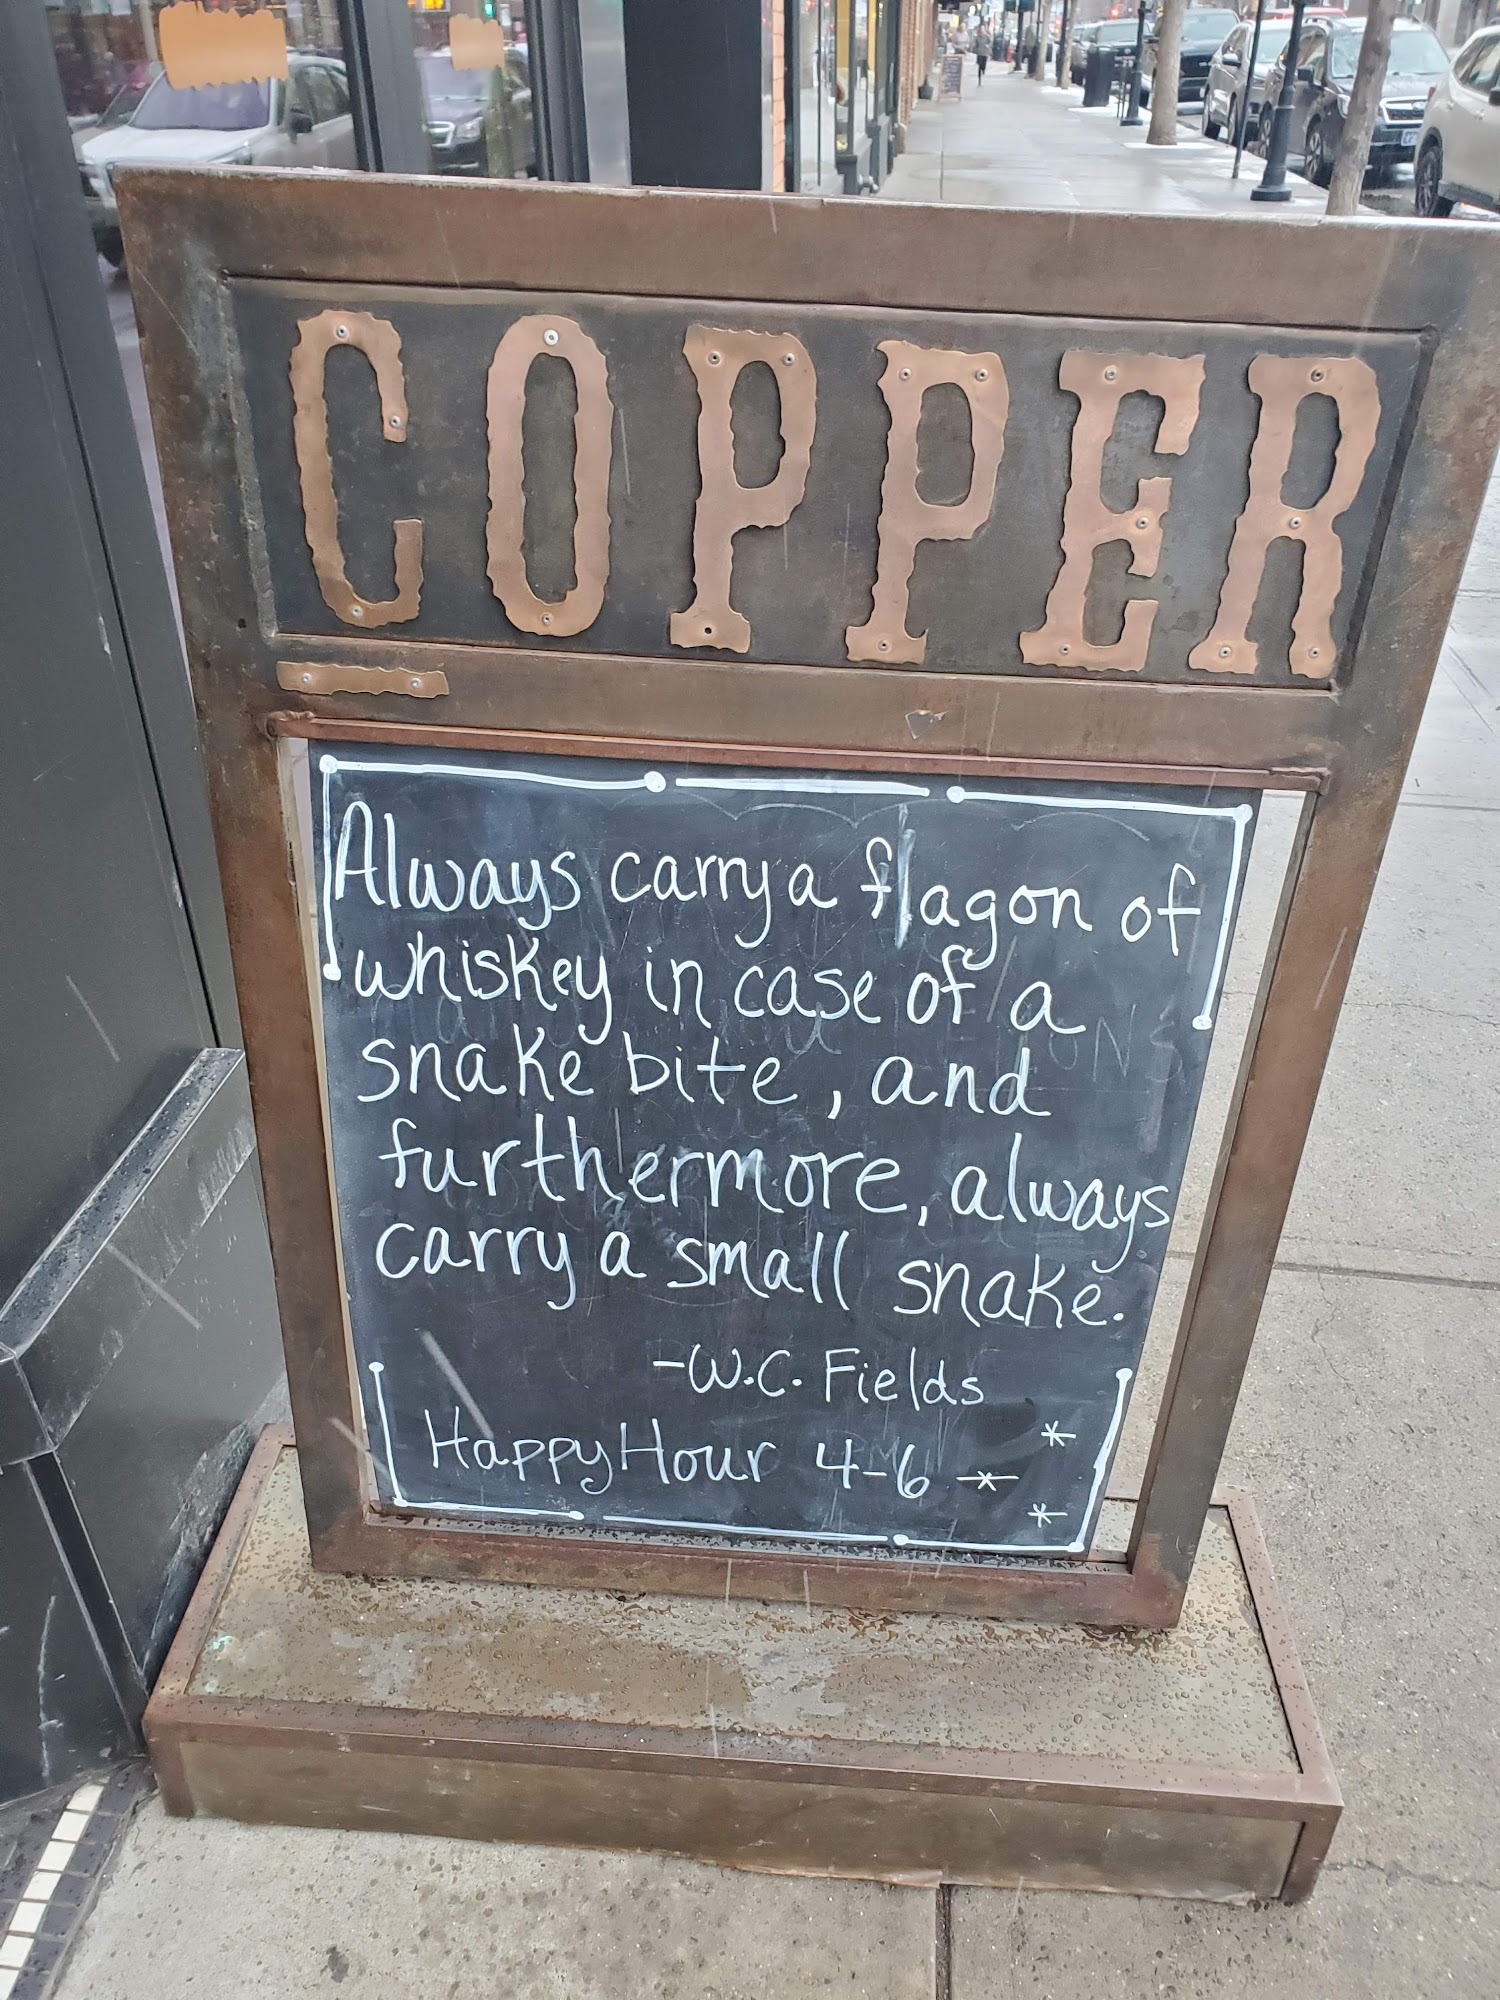 COPPER
Always carry a flagon of
whiskey in case of a
snake bite, and
furthermore, always
carry a small snake.
-W.C. Fields
Happy Hour 4-6